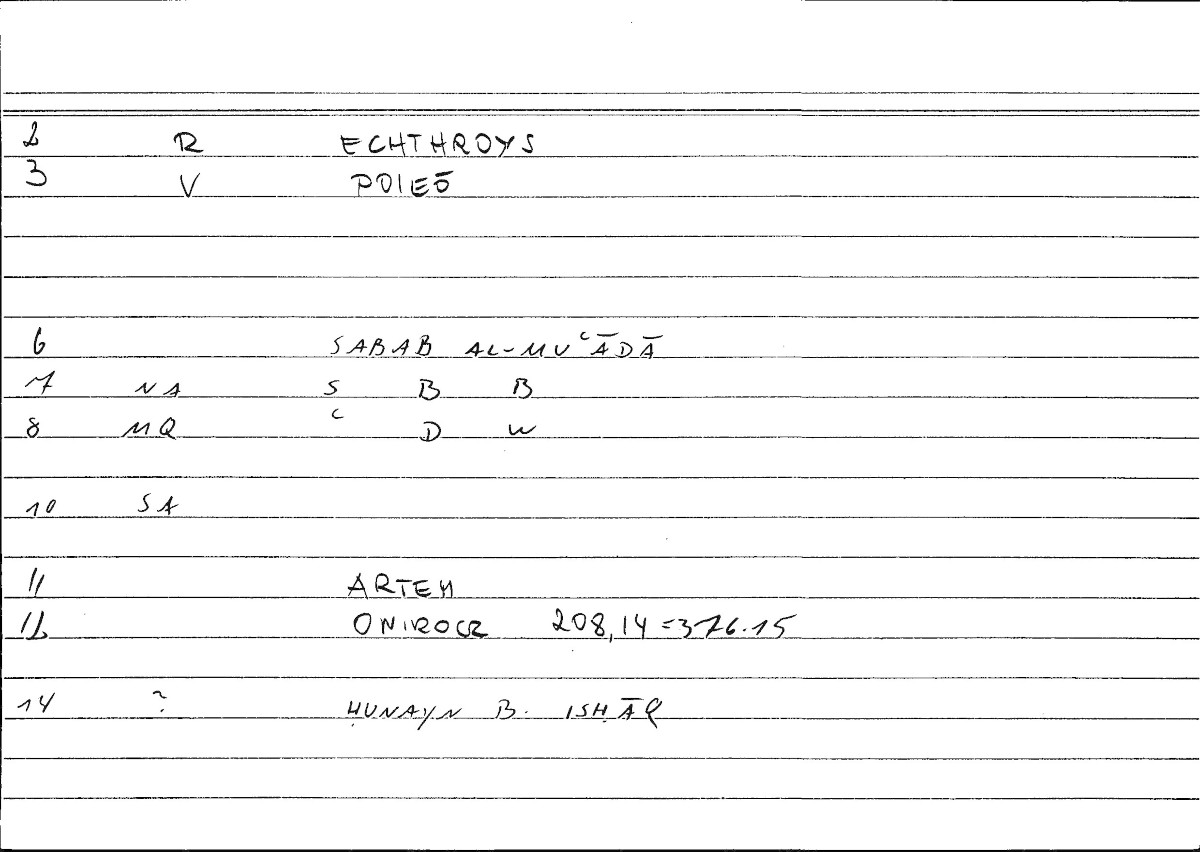 2 R ECHTHROYS
3 V POIEŌ
6 SABAB AL-MUʿĀDĀ
7 NA S B B
8 MQ ʿ D W
10 SA
11 ARTEM
12 ONIROCR 208,14=376.15
14 ? ḤUNAYN B. ISḤĀQ